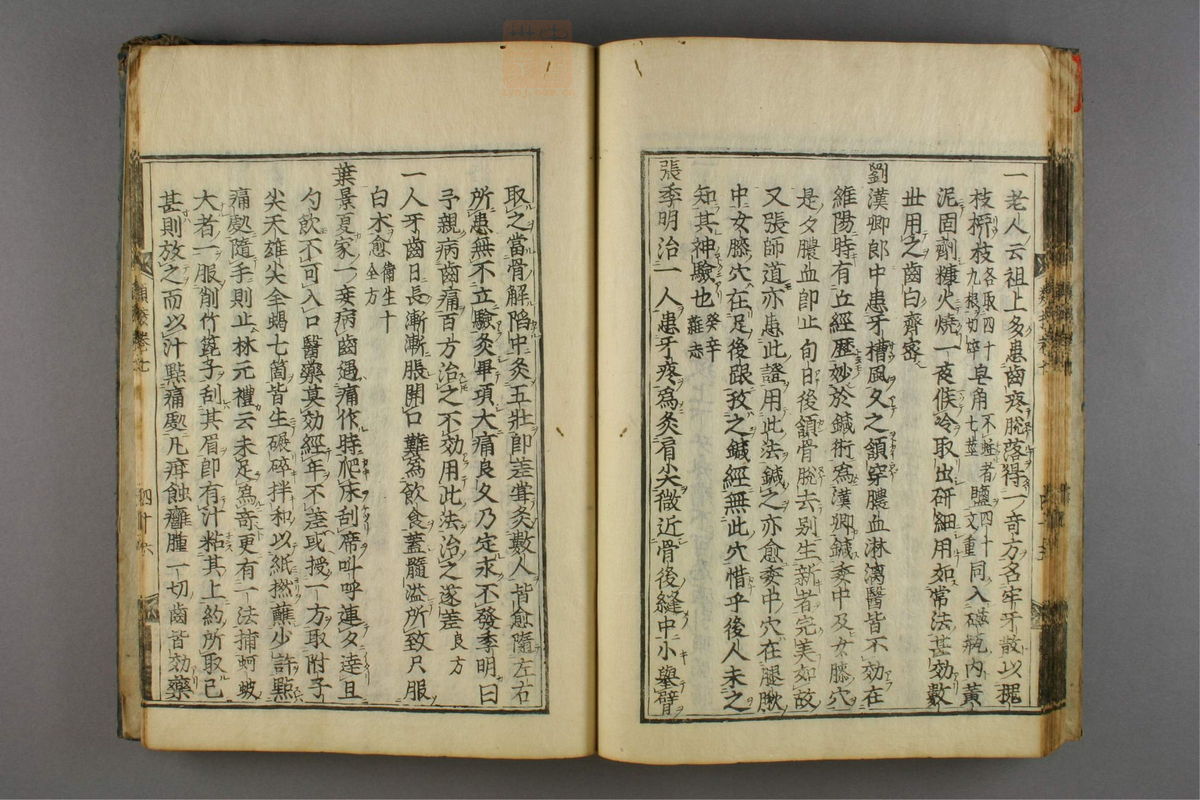 一老人云祖上多患齒疼脫落得一奇方名牢牙散以槐
枝柳枝各取四十九根切碎皂角不蛀者七莖鹽四十文重同入磁瓶內黃
泥固劑糠火燒一夜候冷取出研細用如常法甚効數
世用之齒白齊密
劉漢卿郎中患牙槽風久之頷穿膿血淋漓醫皆不効在
維陽時有丘經歷妙於鍼術為漢卿鍼委中及女膝穴
是夕膿血即止旬日後頷骨脫去別生新者完美如故
又張師道亦患此證用此法鍼之亦愈委中穴在腿䐐
中女膝穴在足後跟孜之鍼經無此穴惜乎後人未之
知其神驗也癸辛雜志
張季明治一人患牙疼為灸肩尖微近骨後縫中小舉臂
取之當骨解陷中灸五壯即差甞灸數人皆愈隨左右
所患無不立驗灸畢項大痛良久乃定永不發季明曰
予親病齒痛百方治之不効用此法治之遂差良方
一人牙齒日長漸漸脹開口難為飲食蓋髓溢所致只服
白朮愈衛生十全方
葉景夏家一妾病齒遇痛作時爬床刮席叫呼連夕達旦
勺飲不可入口醫藥莫効經年不差或授一方取附子
尖天雄尖全蝎七箇皆生碾碎拌和以紙撚蘸少許點
痛處隨手則止林元禮云未足為奇更有一法捕蚵蚾
大者一服削竹篦子刮其眉即有汁粘其上約所取已
甚則放之而以汁點痛處凡疳蝕癰腫一切齒皆効藥
四十六